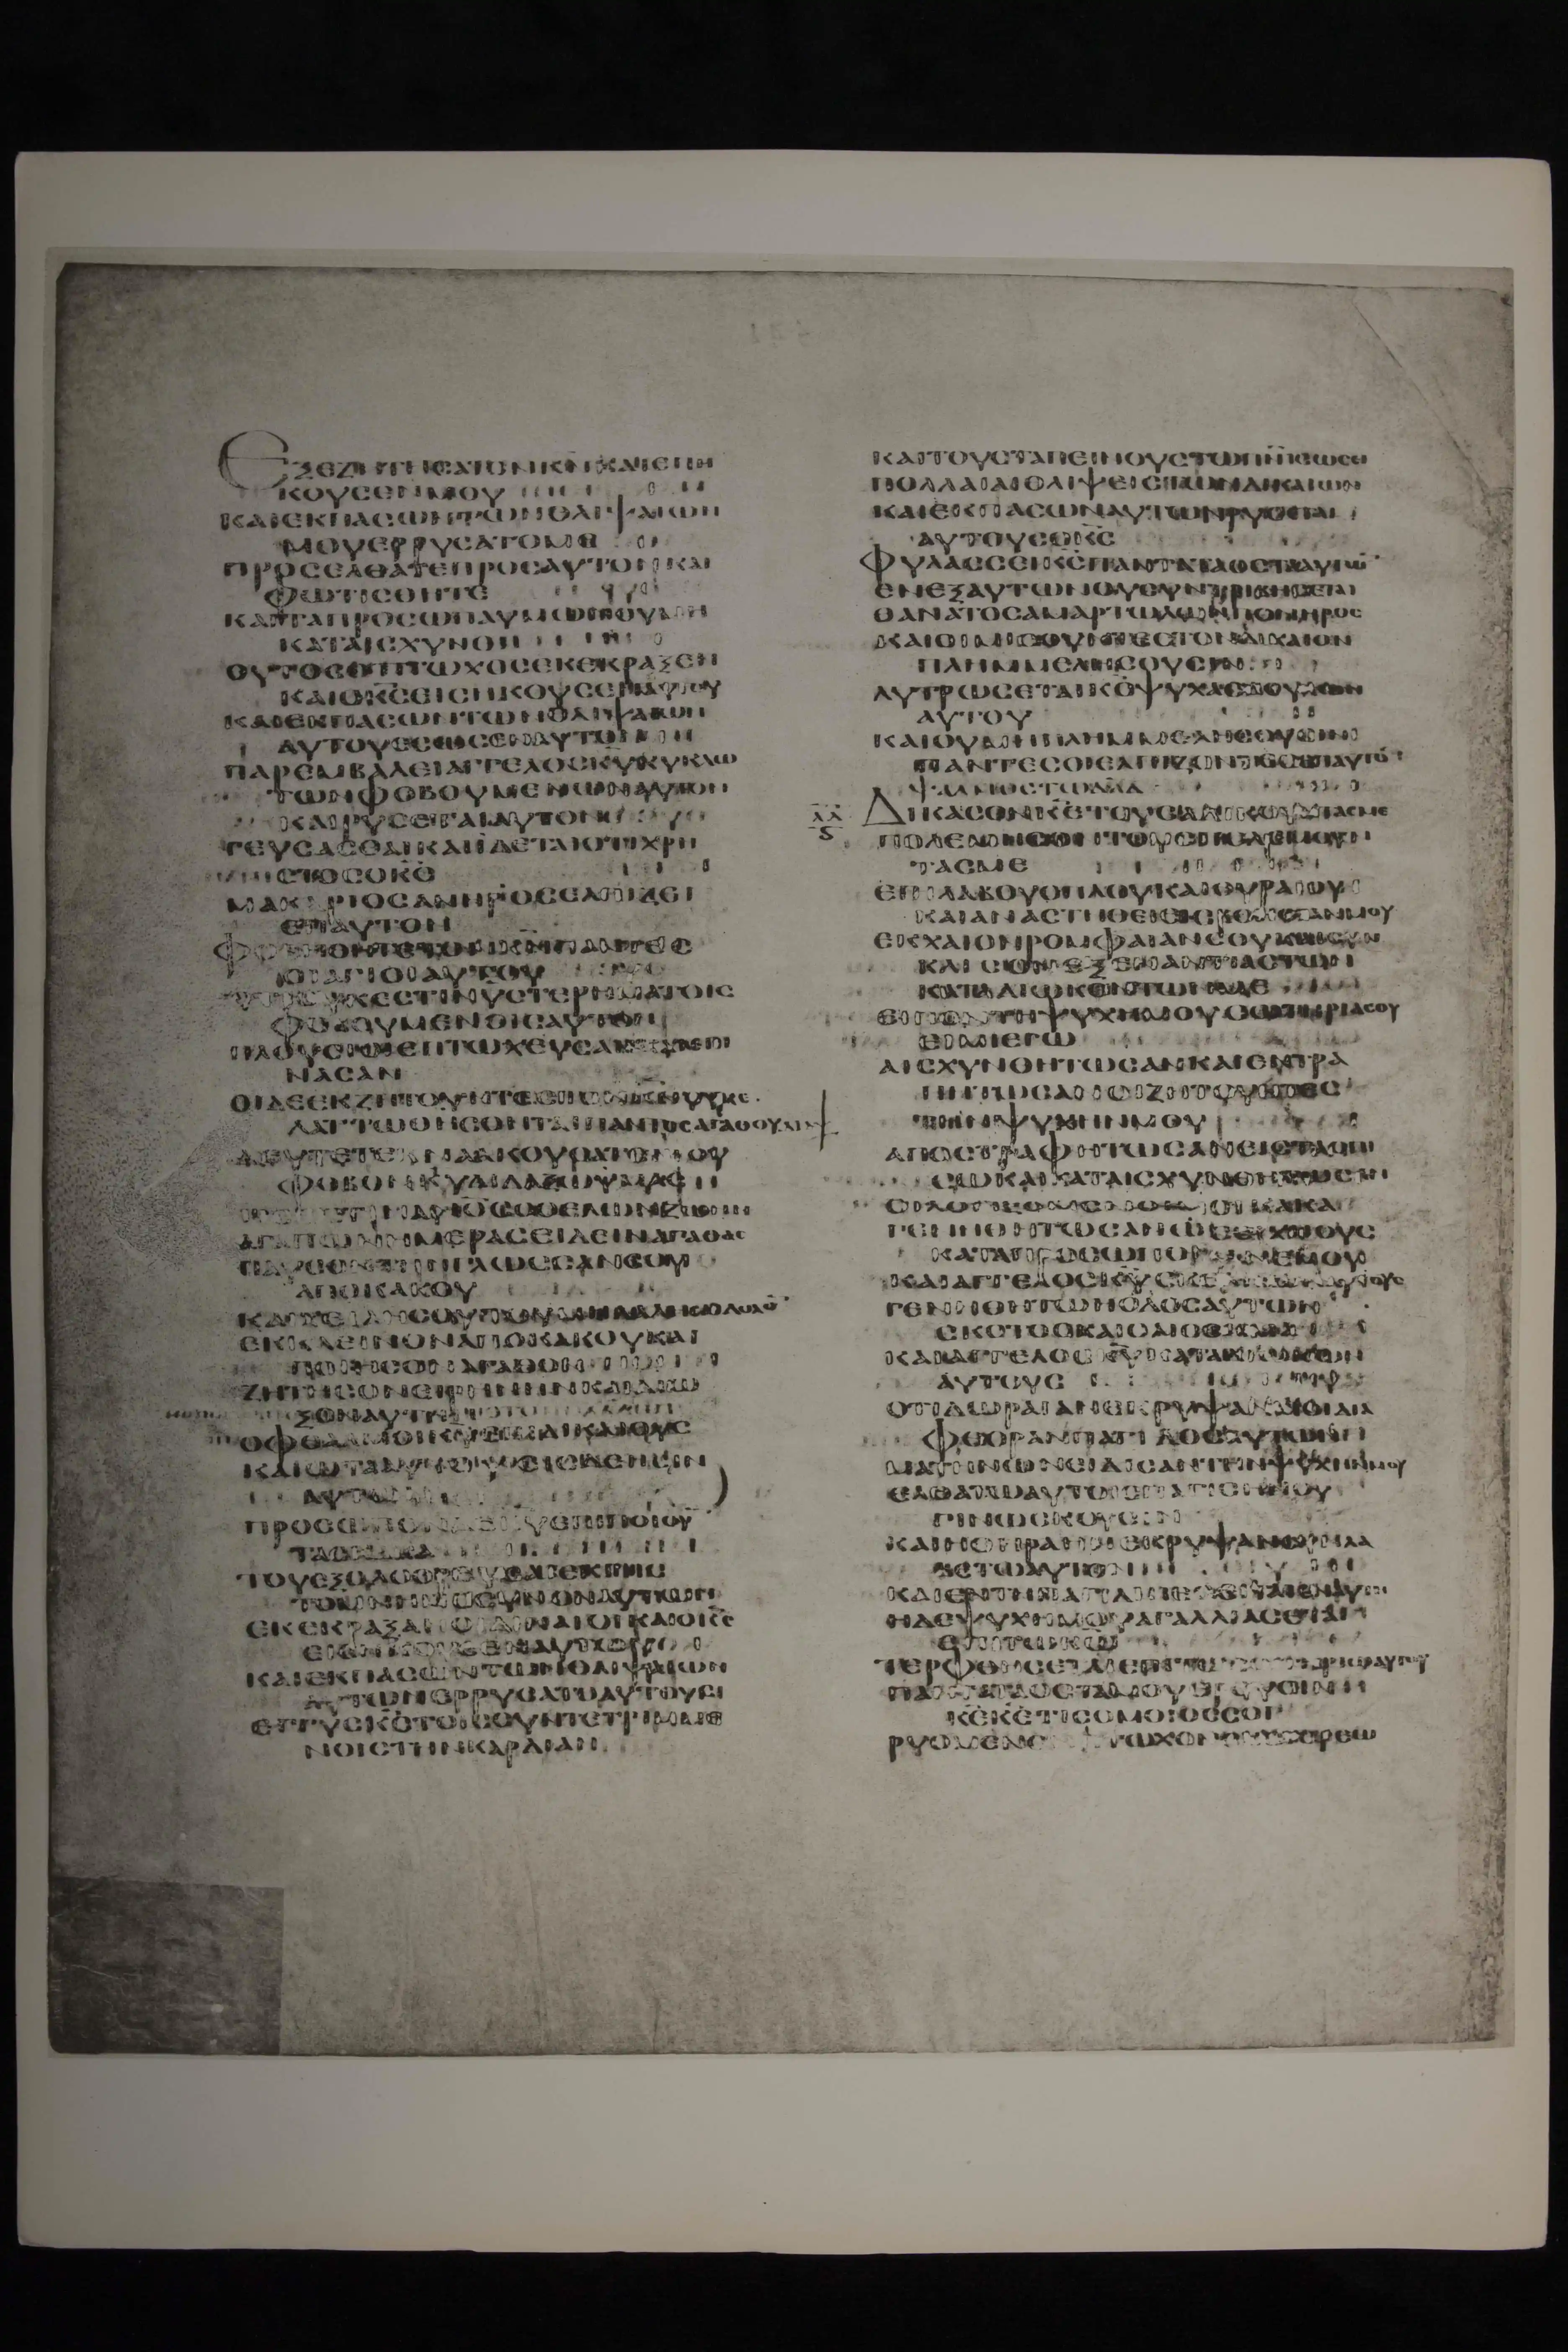 ΕΞΕΖΗΤΗΣΑΤΟΝΚ̅Ν̅ΚΑΙΕΠΗ
ΚΟΥΣΕΝΜΟΥ
ΚΑΙΕΚΠΑΣΩΝΤΩΝΘΛΙΨΑΙΩΝ
ΜΟΥΕΡΡΥΣΑΤΟΜΕ
ΠΡΟΣΕΛΘΑΤΕΠΡΟΣΑΥΤΟΝΚΑΙ
ΦΩΤΙΣΘΗΤΕ
ΚΑΙΤΑΠΡΟΣΩΠΑΥΜΩΝΟΥΜΗ
ΚΑΤΑΙΣΧΥΝΘΗ
ΟΥΤΟΣΟΠΤΩΧΟΣΕΚΕΚΡΑΞΕΝ
ΚΑΙΟΚ̅Σ̅ΕΙΣΗΚΟΥΣΕΝΑΥΤΟΥ
ΚΑΙΕΚΠΑΣΩΝΤΩΝΘΛΙΨΑΙΩΝ
ΑΥΤΟΥΕΣΩΣΕΝΑΥΤΟΝ
ΠΑΡΕΜΒΑΛΕΙΑΓΓΕΛΟΣΚ̅Υ̅ΚΥΚΛΩ
ΤΩΝΦΟΒΟΥΜΕΝΩΝΑΥΤΟΝ
ΚΑΙΡΥΣΕΤΑΙΑΥΤΟΥΣ
ΓΕΥΣΑΣΘΑΙΚΑΙΙΔΕΤΑΙΟΤΙΧΡΗ
ΣΤΟΣΟΚ̅Σ̅
ΜΑΚΑΡΙΟΣΑΝΗΡΟΣΕΛΠΙΖΕΙ
ΕΠΑΥΤΟΝ
ΦΟΒΗΘΗΤΕΤΟΝΚ̅Ν̅ΠΑΝΤΕΣ
ΟΙΑΓΙΟΙΑΥΤΟΥ
ΟΤΙΟΥΚΕΣΤΙΝΥΣΤΕΡΗΜΑΤΟΙΣ
ΦΟΒΟΥΜΕΝΟΙΣΑΥΤΟΝ
ΠΛΟΥΣΙΟΙΕΠΤΩΧΕΥΣΑΝΚΑΙΕΠΙ
ΝΑΣΑΝ
ΟΙΔΕΕΚΖΗΤΟΥΝΤΕΣΤΟΝΚ̅Ν̅ΟΥΚΕ
ΛΑΤΤΩΘΗΣΟΝΤΑΙΠΑΝΤΟΣΑΓΑΘΟΥ
ΔΕΥΤΕΤΕΚΝΑΑΚΟΥΣΑΤΕΜΟΥ
ΦΟΒΟΝΚ̅Υ̅ΔΙΔΑΞΩΥΜΑΣ
ΑΓΑΠΩΝΗΜΕΡΑΣΕΙΔΕΙΝΑΓΑΘΑΣ
ΠΑΥΣΟΝΤΗΝΓΛΩΣΣΑΝΣΟΥ
ΑΠΟΚΑΚΟΥ
ΚΑΙΧΕΙΛΗΣΟΥΤΟΥΜΗΛΑΛΗΣΑΙΔΟΛΟΝ
ΕΚΚΛΕΙΝΟΝΑΠΟΚΑΚΟΥΚΑΙ
ΠΟΙΗΣΟΝΑΓΑΘΟΝ
ΖΗΤΗΣΟΝΕΙΡΗΝΗΝΚΑΙΔΙΩ
ΞΟΝΑΥΤΗΝ
ΟΦΘΑΛΜΟΙΚ̅Υ̅ΕΠΙΔΙΚΑΙΟΥΣ
ΚΑΙΩΤΑΑΥΤΟΥΕΙΣΔΕΗΣΙΝ
ΑΥΤΩΝ
ΠΡΟΣΩΠΟΝΔΕΚ̅Υ̅ΕΠΙΠΟΙΟΥ
ΤΑΣΚΑΚΑ
ΤΟΥΕΞΟΛΟΘΡΕΥΣΑΙΕΚΓΗΣ
ΤΟΜΝΗΜΟΣΥΝΟΝΑΥΤΩΝ
ΕΚΕΚΡΑΞΑΝΟΙΔΙΚΑΙΟΙΚΑΙΟΚ̅Σ̅
ΕΙΣΗΚΟΥΣΕΝΑΥΤΩΝ
ΚΑΙΕΚΠΑΣΩΝΤΩΝΘΛΙΨΑΙΩΝ
ΑΥΤΩΝΕΡΡΥΣΑΤΟΑΥΤΟΥΣ
ΕΓΓΥΣΚ̅Σ̅ΤΟΙΣΣΥΝΤΕΤΡΙΜΜΕ
ΝΟΙΣΤΗΝΚΑΡΔΙΑΝ
ΚΑΙΤΟΥΣΤΑΠΕΙΝΟΥΣΤΩΠ̅Ν̅Ι̅ΣΩΣΕΙ
ΠΟΛΛΑΙΑΙΘΛΙΨΕΙΣΤΩΝΔΙΚΑΙΩΝ
ΚΑΙΕΚΠΑΣΩΝΑΥΤΩΝΡΥΣΕΤΑΙ
ΑΥΤΟΥΣΟΚ̅Σ̅
ΦΥΛΑΣΣΕΙΚ̅Σ̅ΠΑΝΤΑΤΑΟΣΤΑΑΥΤΩΝ
ΕΝΕΞΑΥΤΩΝΟΥΣΥΝΤΡΙΒΗΣΕΤΑΙ
ΘΑΝΑΤΟΣΑΜΑΡΤΩΛΩΝΠΟΝΗΡΟΣ
ΚΑΙΟΙΜΙΣΟΥΝΤΕΣΤΟΝΔΙΚΑΙΟΝ
ΠΛΗΜΜΕΛΗΣΟΥΣΙΝ
ΛΥΤΡΩΣΕΤΑΙΚ̅Σ̅ΨΥΧΑΣΔΟΥΛΩΝ
ΑΥΤΟΥ
ΚΑΙΟΥΜΗΠΛΗΜΜΕΛΗΣΟΥΣΙΝ
ΠΑΝΤΕΣΟΙΕΛΠΙΖΟΝΤΕΣΕΠΑΥΤΟΝ
ΨΑΛΜΟΣΤΩΔ̅Α̅Δ̅
Λ̅Δ̅
ΔΙΚΑΣΟΝΚ̅Ε̅ΤΟΥΣΑΔΙΚΟΥΝΤΑΣΜΕ
ΠΟΛΕΜΗΣΟΝΤΟΥΣΠΟΛΕΜΟΥΝ
ΤΑΣΜΕ
ΕΠΙΛΑΒΟΥΟΠΛΟΥΚΑΙΘΥΡΑΙΟΥ
ΚΑΙΑΝΑΣΤΗΘΕΙΕΙΣΒΟΗΘΕΙΑΝΜΟΥ
ΕΚΧΑΙΟΝΡΟΜΦΑΙΑΝΣΟΥΚΑΙΣΥΝ
ΚΛΙΣΟΝΕΞΕΝΑΝΤΙΑΣΤΩΝ
ΚΑΤΑΔΙΩΚΟΝΤΩΝΜΕ
ΕΙΠΟΝΤΗΨΥΧΗΜΟΥΣΩΤΗΡΙΑΣΟΥ
ΕΙΜΙΕΓΩ
ΑΙΣΧΥΝΘΗΤΩΣΑΝΚΑΙΕΝΤΡΑ
ΠΗΤΩΣΑΝΟΙΖΗΤΟΥΝΤΕΣ
ΤΗΝΨΥΧΗΝΜΟΥ
ΑΠΟΣΤΡΑΦΗΤΩΣΑΝΕΙΣΤΑΟΠΙ
ΣΩΚΑΙΚΑΤΑΙΣΧΥΝΘΗΤΩΣΑΝ
ΟΙΛΟΓΙΖΟΜΕΝΟΙΜΟΙΚΑΚΑ
ΓΕΝΗΘΗΤΩΣΑΝΩΣΕΙΧΝΟΥΣ
ΚΑΤΑΠΡΟΣΩΠΟΝΑΝΕΜΟΥ
ΚΑΙΑΓΓΕΛΟΣΚ̅Υ̅ΕΚΘΛΙΒΩΝΑΥΤΟΥΣ
ΓΕΝΗΘΗΤΩΗΟΔΟΣΑΥΤΩΝ
ΣΚΟΤΟΣΚΑΙΟΛΙΣΘΗΜΑ
ΚΑΙΑΓΓΕΛΟΣΚ̅Υ̅ΚΑΤΑΔΙΩΚΩΝ
ΑΥΤΟΥΣ
ΟΤΙΔΩΡΑΙΑΝΕΚΡΥΨΑΝΜΟΙΔΙΑ
ΦΘΟΡΑΝΠΑΓΙΔΟΣΑΥΤΩΝ
ΜΑΤΗΝΩΝΕΙΔΙΣΑΝΤΗΝΨΥΧΗΝΜΟΥ
ΕΛΘΑΤΩΑΥΤΟΙΣΠΑΓΙΣΗΝΟΥ
ΓΙΝΩΣΚΟΥΣΙΝ
ΚΑΙΗΘΗΡΑΗΝΕΚΡΥΨΑΝΣΥΛΛΑ
ΒΕΤΩΑΥΤΟΥΣ
ΚΑΙΕΝΤΗΠΑΓΙΔΙΠΕΣΟΥΝΤΑΙΕΝΑΥΤΗ
ΗΔΕΨΥΧΗΜΟΥΑΓΑΛΛΙΑΣΕΤΑΙ
ΕΠΙΤΩΚ̅Ω̅
ΤΕΡΦΘΗΣΕΤΑΙΕΠΙΤΩΣΩΤΗΡΙΩΑΥΤΟΥ
ΠΑΝΤΑΤΑΟΣΤΑΜΟΥΕΡΟΥΣΙΝ
Κ̅Ε̅Κ̅Ε̅ΤΙΣΟΜΟΙΟΣΣΟΙ
ΡΥΟΜΕΝΟΣΠΤΩΧΟΝΕΚΧΕΙΡΟΣ